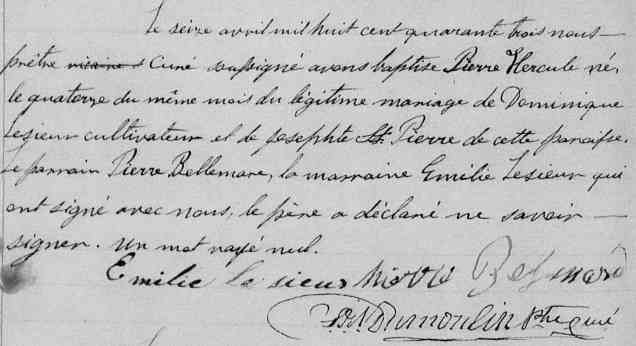 Le seize avril mil huit cent quarante trois nous
prêtre vicaire s Curé soussigné avons baptisé Pierre Hercule né,
le quatorze du même mois du légitime mariage de Dominique
Lesieur cultivateur et de Josephte St. Pierre de cette paroisse.
Le parrain Pierre Bellemare, la marraine Emilie Lesieur qui
ont signé avec nous, le père a déclaré ne savoir
signer. Un mot rayé nul.
Emilie le sieur
Dumoulin Ptre Curé